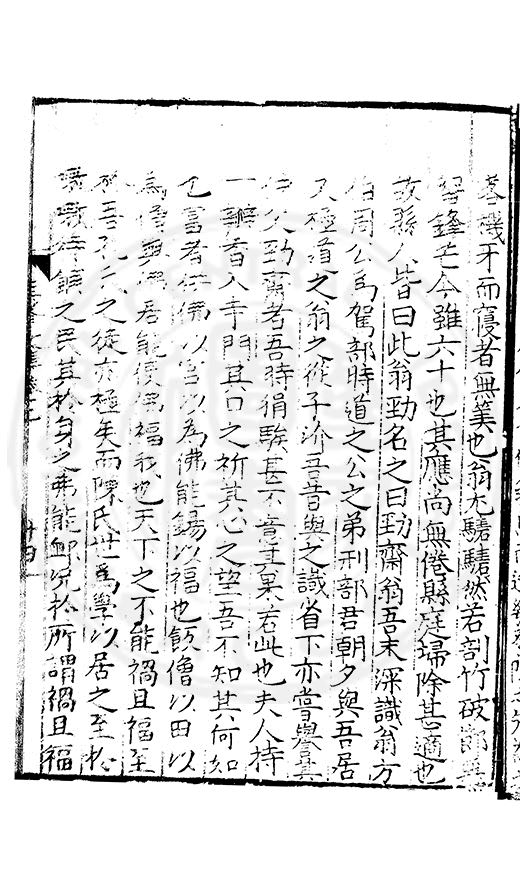 機牙而寢者無筭也翁尤驍驍然若剖竹破節
鋒芒今雖六十也其應尚無倦縣庭掃除甚適也
故縣人皆曰此翁勁名之曰勁齋翁吾未深識翁方
伯周公為駕部時道之公之弟刑部君朝夕與吾居
又極道之翁之從子沂吾音與之識省下亦嘗譽其
伯父勁齋者吾時狷騃甚不意其果若此也夫人持
一瓣香入寺門其口之祈其心之望吾不知其何如
也富者侍佛以宮以為佛能錫以福也飯僧以田以
為僧與佛居能使佛福我也天下之不能禍且福至
於吾孔氏之徒亦極矣而陳氏世為學以居之至於
待餼之民其於身之弗能卹況於所謂禍且福